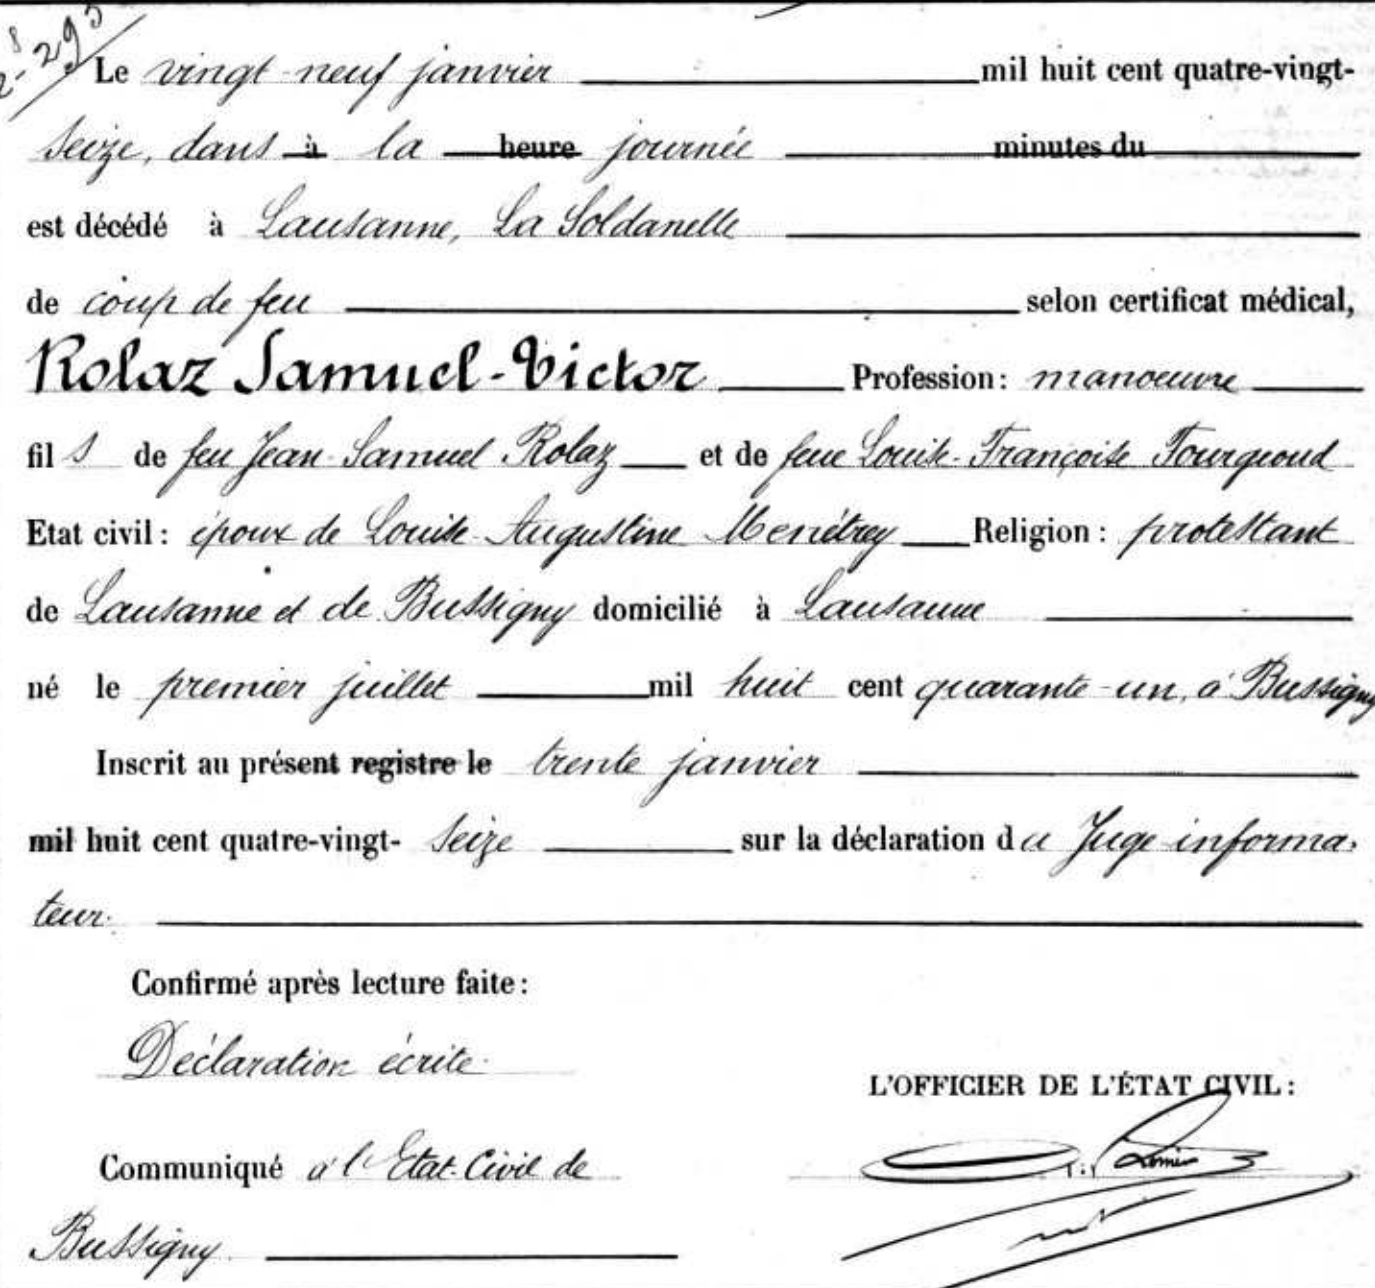 Le vingt-neuf janvier mil huit cent quatre-vingt-
seize, dans à la heure journée minutes du
est décédé à Lausanne, La Soldanelle
de coup de feu selon certificat médical,
Rolaz Samuel-Victor Profession: manoeuvre
fil s de feu Jean-Samuel Rolaz et de feue Louise-Françoise Fourgeoud
Etat civil: époux de Louise-Augustine Menétrey Religion: protestant
de Lausanne et de Bussigny domicilié à Lausanne
né le premier juillet mil huit cent quarante-un, à Bussigny
Inscrit au présent registre le trente janvier
mil huit cent quatre-vingt- seize sur la déclaration du Juge informa-
teur.
Confirmé après lecture faite:
Déclaration écrite.
L'OFFICIER DE L'ÉTAT CIVIL:
Communiqué à l'Etat-Civil de
Bussigny.